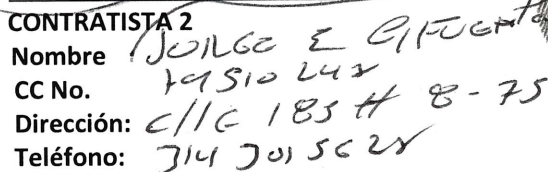 CONTRATISTA 2
Nombre JORGE E CIFUENTES
CC No.
Dirección: C//E 183 # 8-75
Teléfono: 314 301 5628